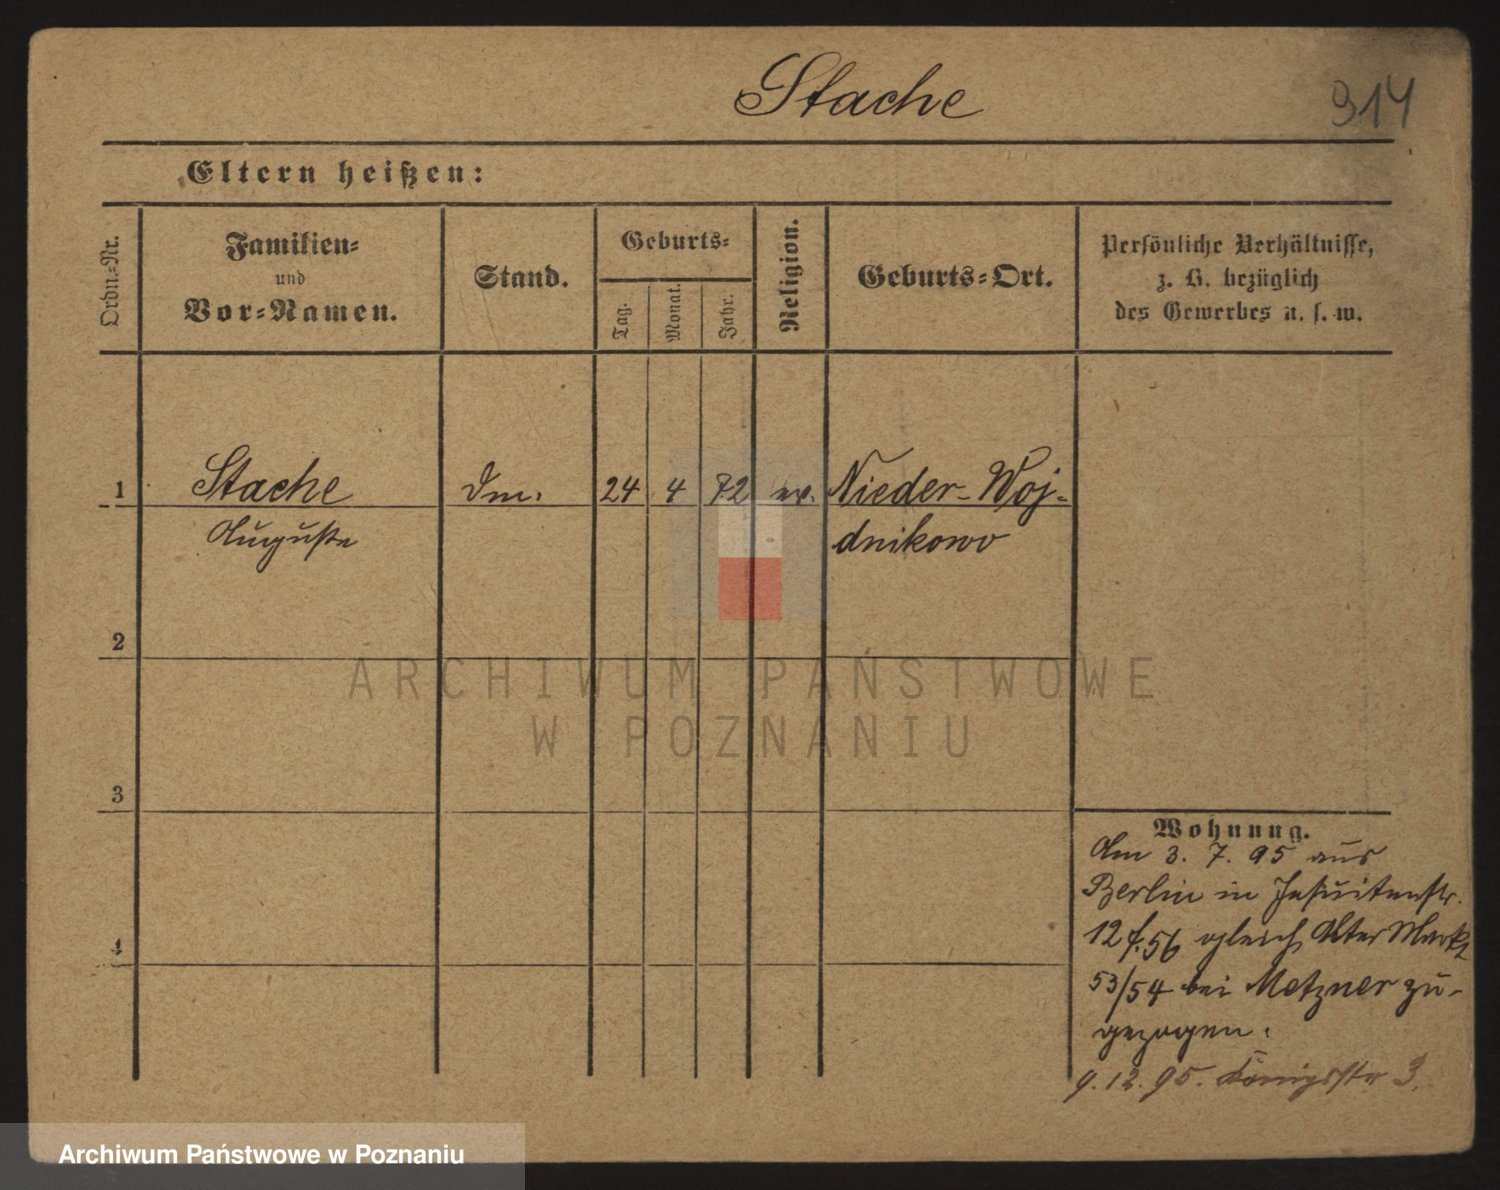 Stache
914
Eltern heißen:
Ordn.-Nr.
Familien-
und
Vor-Namen.
Stand.
Geburts-
Tag.
Monat.
Jahr.
Religion.
Geburts-Ort.
Persönliche Verhältnisse,
z. B. bezüglich
des Gewerbes u. s. w.
1 Stache 24 4 72 ev. Nieder-Woj-
Auguste dnikowo
2
3
4
Wohnung.
Am 3. 7. 95 aus
Berlin in Jesuitenstr.
12 f. 56 gleich Alter Markt
53/54 bei Metzner zu-
gezogen.
9. 12. 95. Königsstr 3.
ARCHIWUM PAŃSTWOWE
W POZNANIU
Archiwum Państwowe w Poznaniu